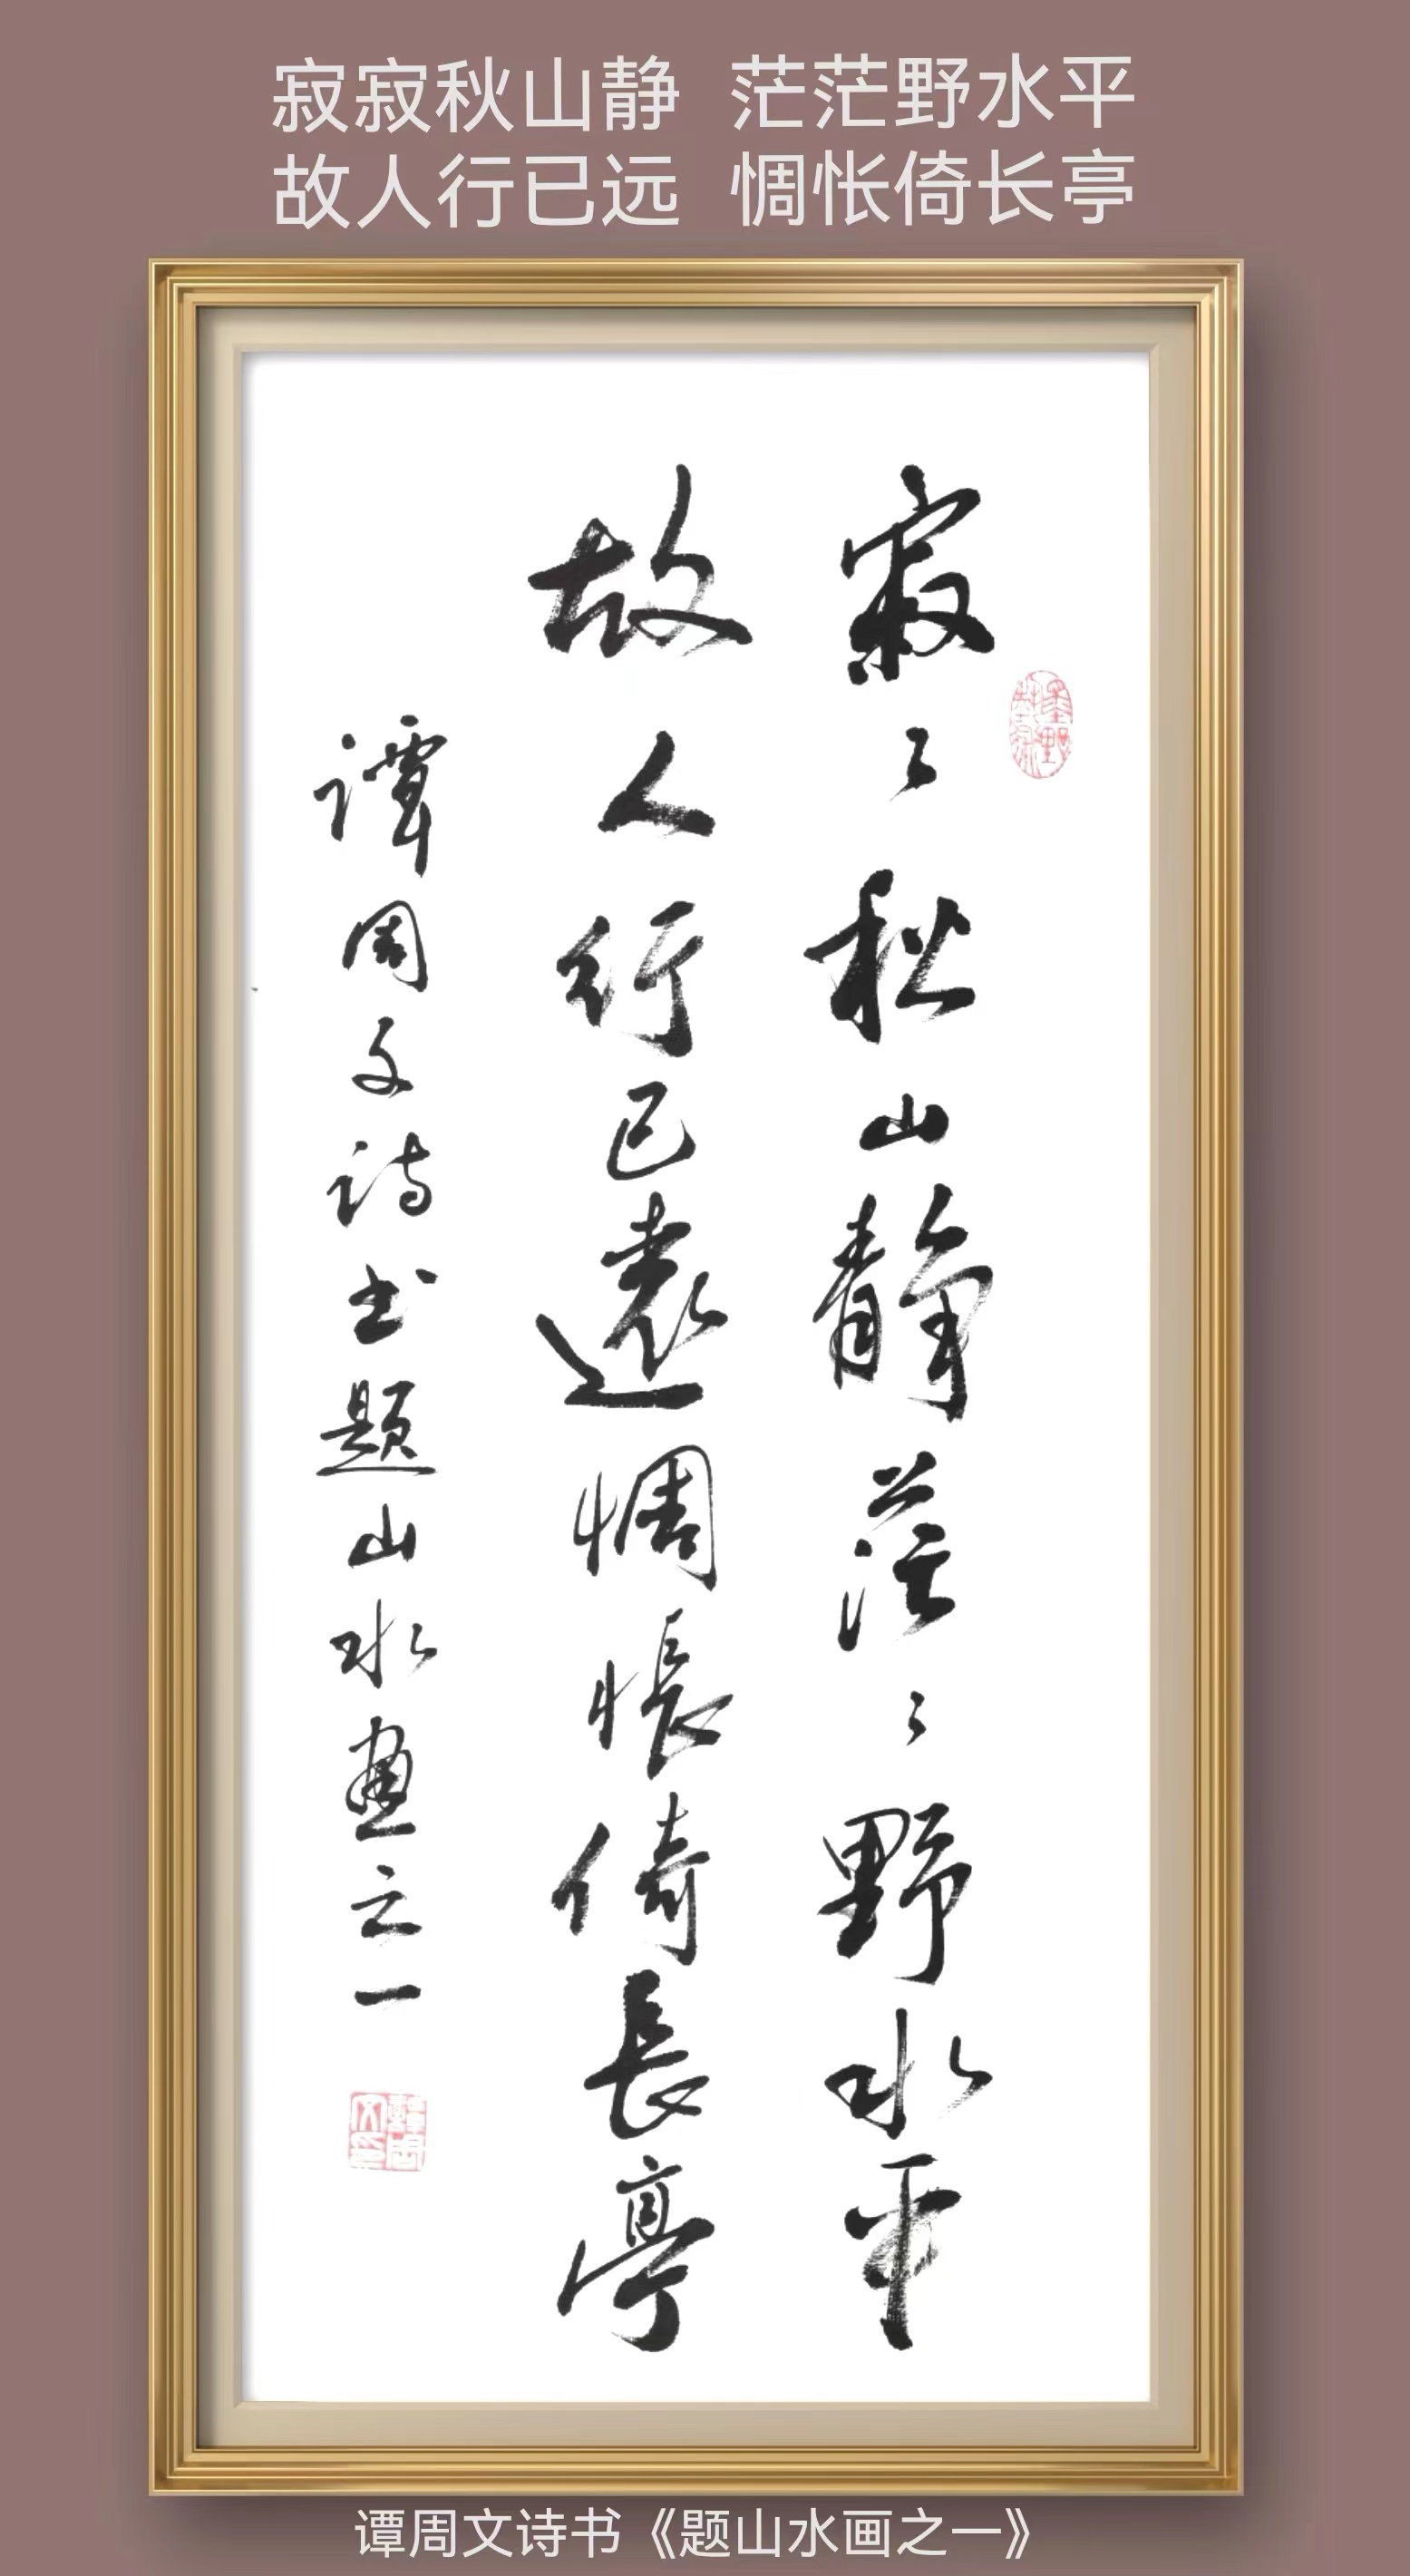 寂寂秋山静 茫茫野水平
故人行已远 惆怅倚长亭
寂〻秋山静茫〻野水平
故人行已遠惆悵倚長亭
谭周文诗书题山水畫之一
谭周文诗书《题山水画之一》